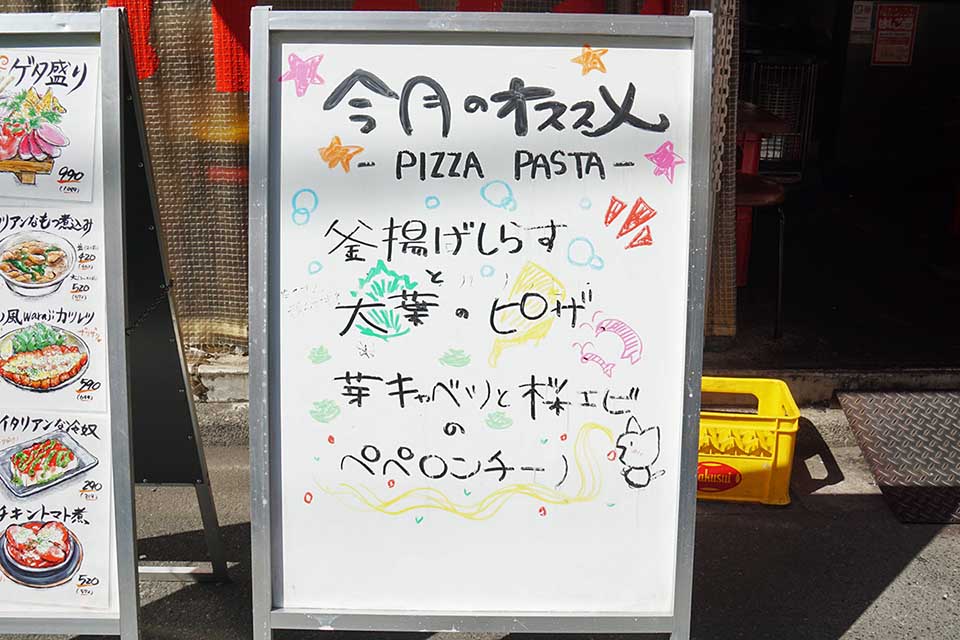 ゲタ盛り
990
リアンなもつ煮込み
420
520
風warajiカツレツ
590
イタリアンな冷奴
290
チキントマト煮
520
今月のオススメ
- PIZZA PASTA -
釜揚げしらす
と
大葉のピザ
芽キャベツと桜エビ
の
ペペロンチーノ
akusui